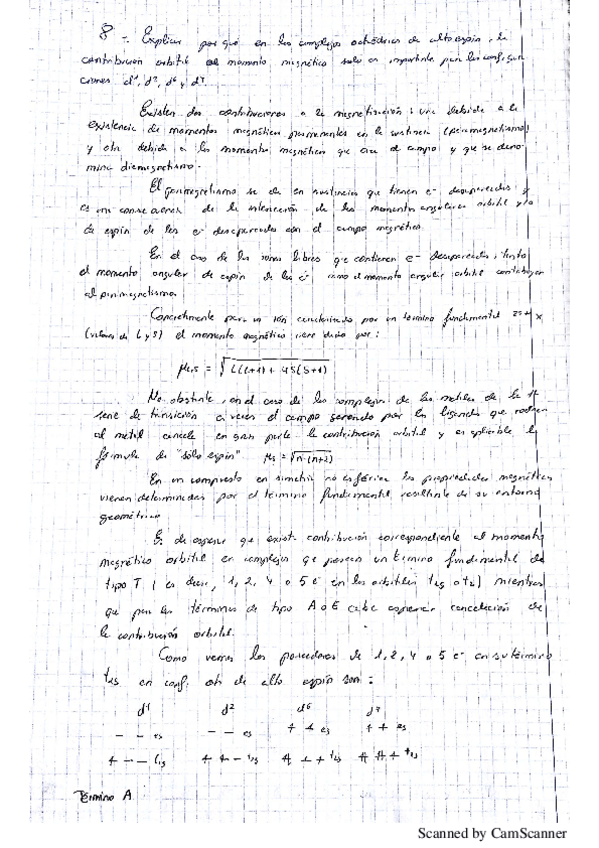 8-. Explicar por qué en los complejos octaédricos de alto espín, la
contribución orbital al momento magnético solo es importante para las configura
ciones d¹, d², d⁶ y d⁷
Existen dos contribuciones a la magnetización: una debida a la
existencia de momentos magnéticos permanentes en la sustancia (paramagnetismo)
y otra debida a los momentos magnéticos que crea el campo y que se deno
mina diamagnetismo.
El paramagnetismo se da en sustancias que tienen e- desapareados y
es una consecuencia de la interacción de los momentos angulares orbital y/o
de espín de los e- desapareados con el campo magnético.
En el caso de los iones libres que contienen e- desapareados, tanto
el momento angular de espín de los e- como el momento angular orbital contribuyen
al paramagnetismo.
Concretamente para un ión caracterizado por un término fundamental
(valores de L y S) el momento magnético viene dado por:
μL+S = √L(L+1) + 4S(S+1)
No obstante, en el caso de los complejos de los metales de la 1ª
serie de transición a veces el campo generado por los ligandos que rodean
al metal cancela en gran parte la contribución orbital y es aplicable la
fórmula de "sólo espín" μs = √n·(n+2)
En un compuesto en simetría no esférica las propiedades magnéticas
vienen determinadas por el término fundamental resultante de su entorno
geométrico.
Es de esperar que exista contribución correspondiente al momento
magnético orbital en complejos que posean un término fundamental de
tipo T (es decir, 1, 2, 4 o 5 e- en los orbitales t2g o t2) mientras
que para los términos de tipo A o E cabe esperar cancelación de
la contribución orbital.
Como vemos los poseedores de 1, 2, 4 o 5 e- en su término
t2g en conf. oh de alto espín son:
d¹ d² d⁶ d⁷
eg eg eg eg
t2g t2g t2g t2g
Término A
Scanned by CamScanner